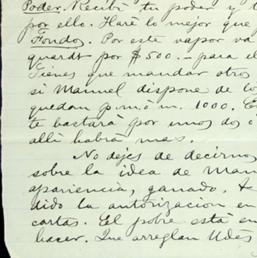 Poder. Recibí tu poder y t
por ello. Haré lo mejor que
Fondos. Por este vapor va
quardt por $500.- para el
Tienes que mandar otros
si Manuel dispone de los
quedan p.m ó m. 1000. E
te bastará por unos dos ó
allí habrá mas.
No dejes de decirnos
sobre la idea de Man
apariencia, ganado, &
dido la autorización en
cartas. El pobre está en
hacer. Que arreglan Udes